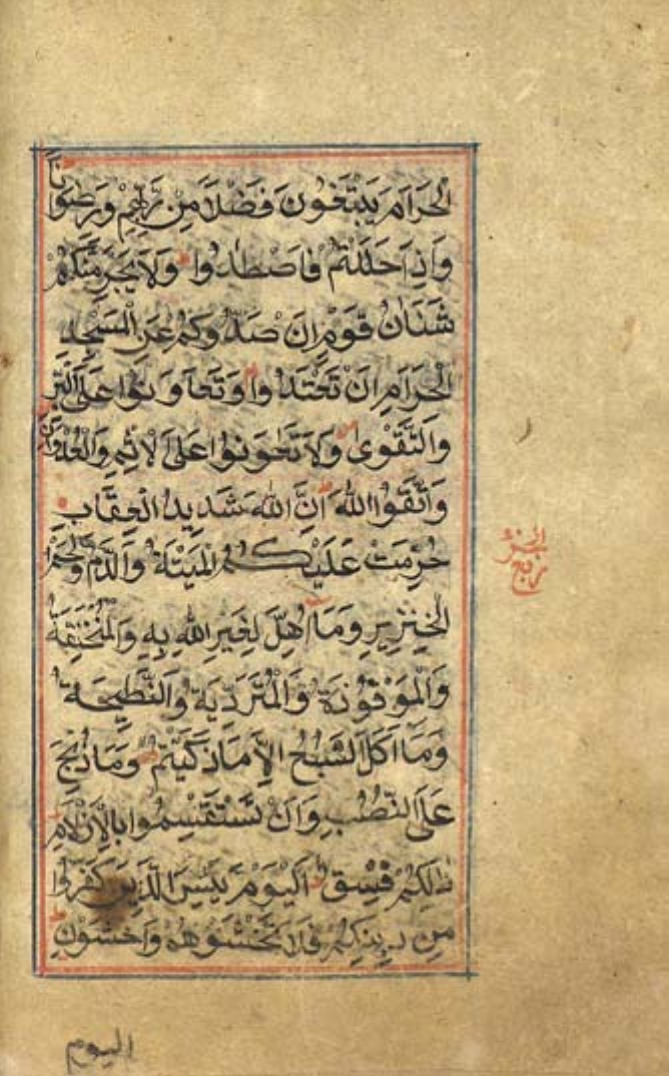 الْحَرَامَ يَبْتَغُونَ فَضْلًا مِنْ رَبِّهِمْ وَرِضْوَانًا
وَإِذَا حَلَلْتُمْ فَاصْطَادُوا وَلَا يَجْرِمَنَّكُمْ
شَنَاٰنُ قَوْمٍ اَنْ صَدُّوكُمْ عَنِ الْمَسْجِدِ
الْحَرَامِ اَنْ تَعْتَدُوا وَتَعَاوَنُوا عَلَى الْبِرِّ
وَالتَّقْوٰى وَلَا تَعٰوَنُوا عَلَى الْاِثْمِ وَالْعُدْوَانِ
وَاتَّقُوا اللّٰهَ اِنَّ اللّٰهَ شَدِيدُ الْعِقَابِ
حُرِّمَتْ عَلَيْكُمُ الْمَيْتَةُ وَالدَّمُ وَلَحْمُ
الْخِنْزِيرِ وَمَا اُهِلَّ لِغَيْرِ اللّٰهِ بِهِ وَالْمُنْخَنِقَةُ
وَالْمَوْقُوذَةُ وَالْمُتَرَدِّيَةُ وَالنَّطِيحَةُ
وَمَا اَكَلَ السَّبُعُ اِلَّا مَا ذَكَّيْتُمْ وَمَا ذُبِحَ
عَلَى النُّصُبِ وَاَنْ تَسْتَقْسِمُوا بِالْاَزْلَامِ
ذٰلِكُمْ فِسْقٌ اَلْيَوْمَ يَئِسَ الَّذِينَ كَفَرُوا
مِنْ دِينِكُمْ فَلَا تَخْشَوْهُمْ وَاخْشَوْنِ
اليوم
ربع